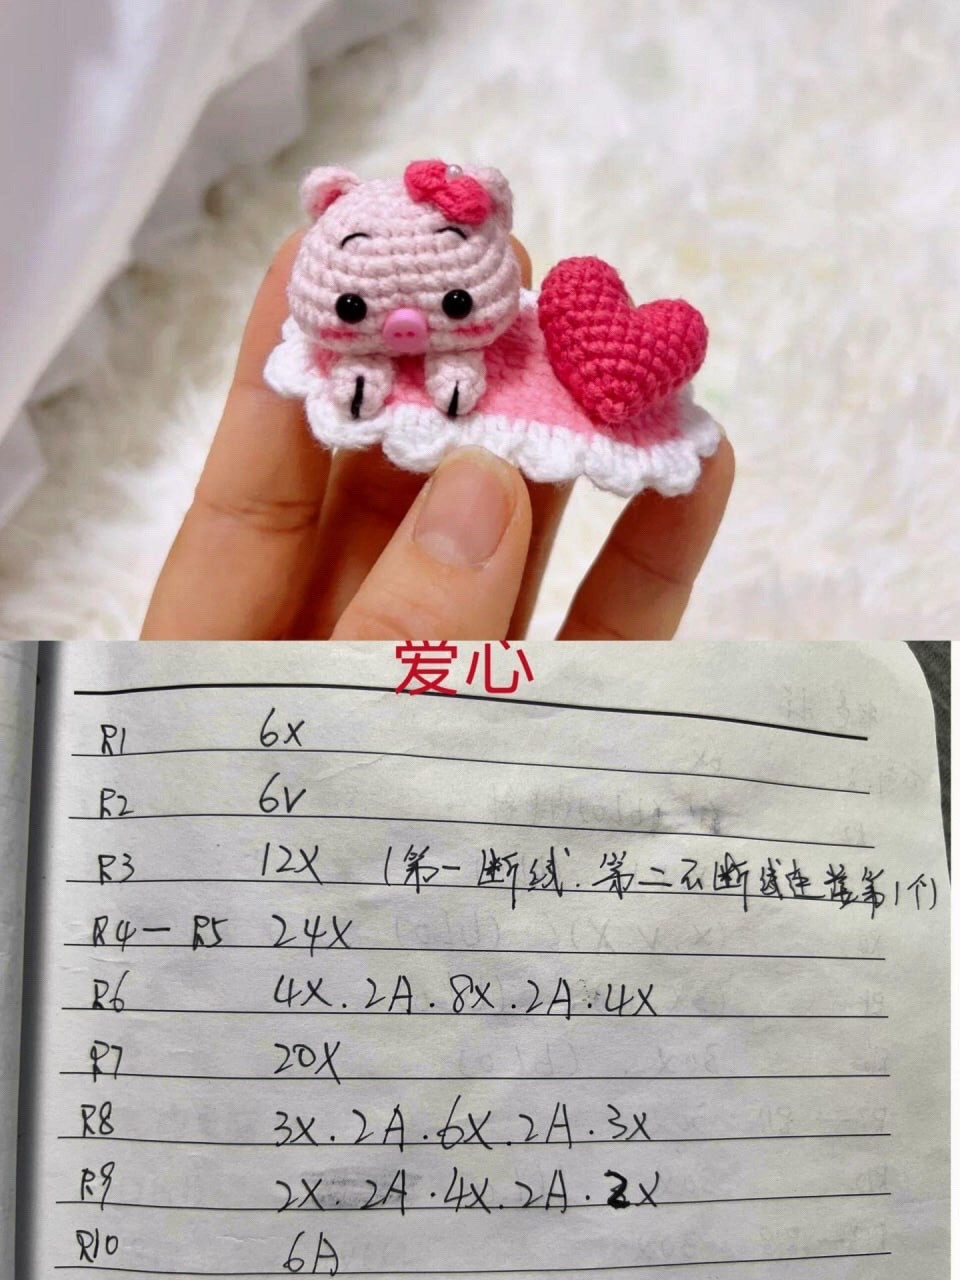 爱心
R1 6X
R2 6V
R3 12X (第一断线.第二不断线连接第1个)
R4—R5 24X
R6 4X.2A.8X.2A.4X
R7 20X
R8 3X.2A.6X.2A.3X
R9 2X.2A.4X.2A.2X
R10 6A